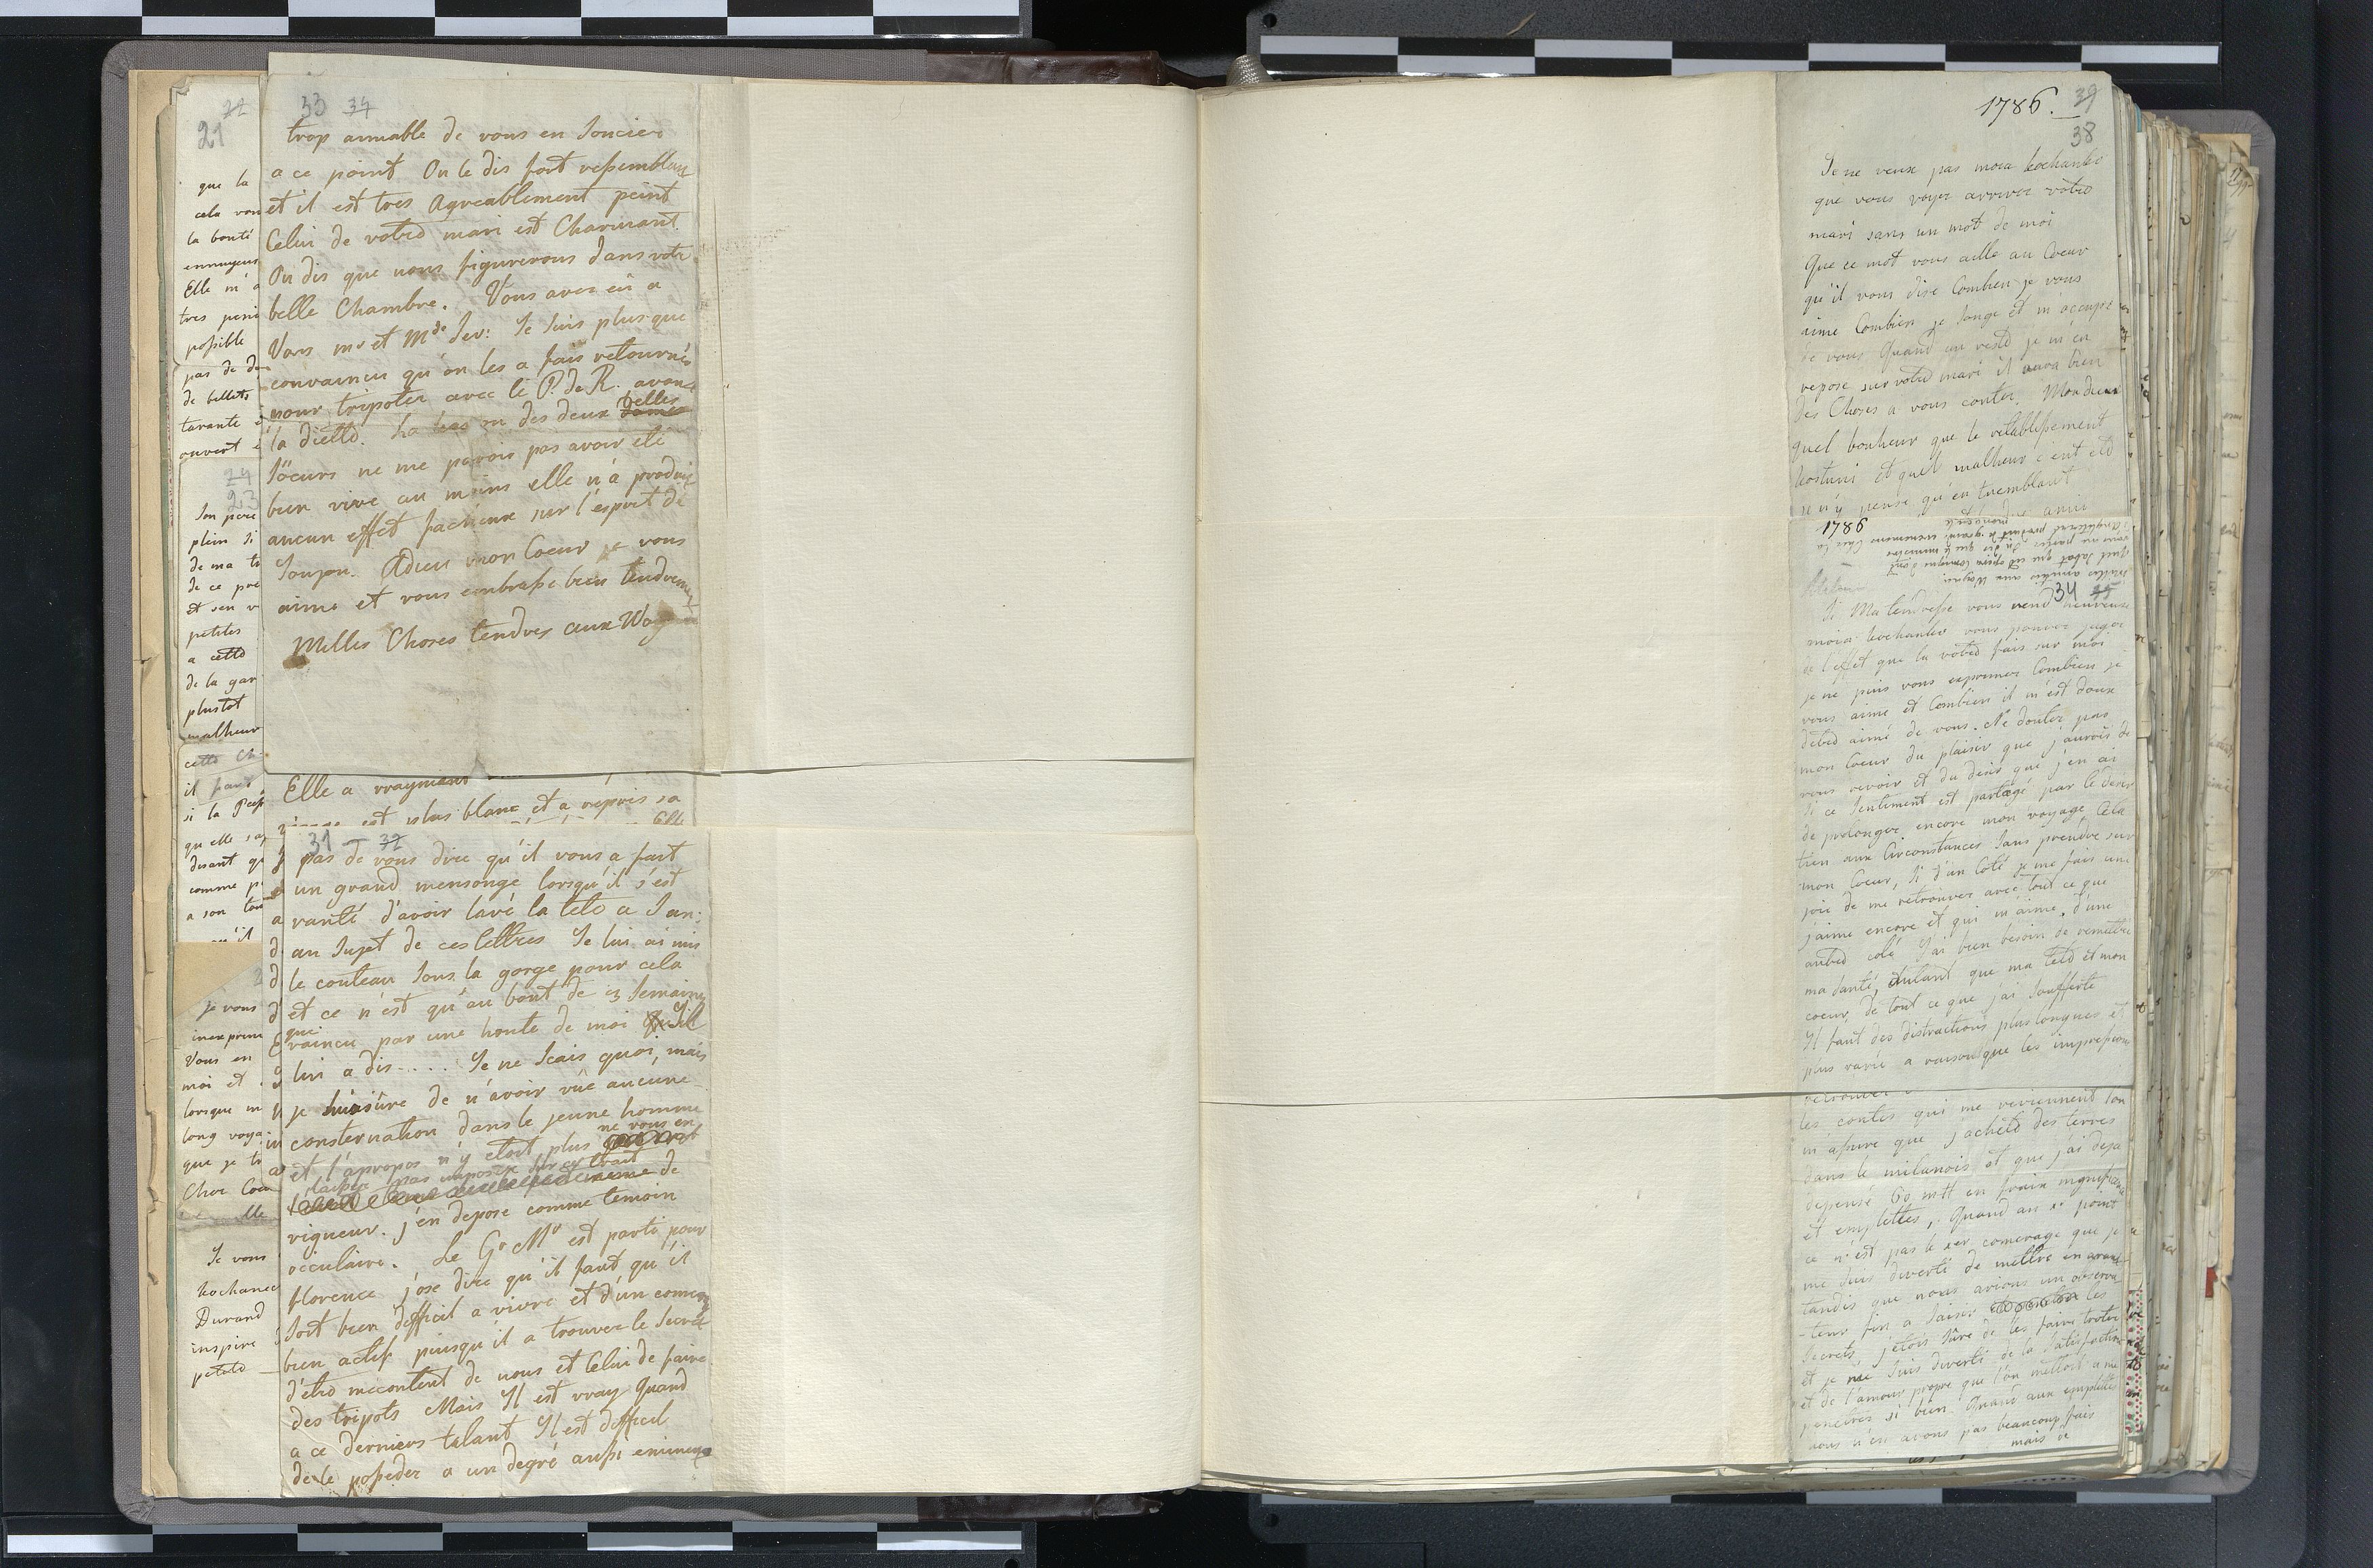 22
21
que la
cela vou
la bonté
ennuyeus
Elle m'a
tres peni
possible
pas de d
de billets
tarante
ouvert
24
23
Son pere
plein di
de ma t
de ce pre
et son v
petites
a cette
de la gar
plustot
malheur
cette Ch
il faut
si la Prif
qu'elle s'a
disant q
comme p
a son tou
qu'il
je vous
inexprim
Vous en
moi et
lorsque m
long voya
que je t
Cher Coeu
Je vous
kochanec
Durand
inspire
petite
33 34
trop aimable de vous en soucier
a ce point On le dis fort ressemblant
et il est tres Agreablement peint
Celui de votre mari est Charmant.
On dis que nous figurerons dans votre
belle Chambre. Vous avez eû a
Vars mr et Mde Sev: Je suis plus que
convaincu qu'on les a fais retourner
pour tripoter avec le P. de R. avant
la diette. La des deux belles
Soeurs ne me parois pas avoir eté
bien vive au moins elle n'a produit
aucun effet facheux sur l'esprit de
Adieu mon Coeur je vous
aime et vous embrasse bien tendrement
Milles Choses tendres aux Woy
Elle a vrayment
visage est plus blanc et a repris sa
31 32
pas de vous dire qu'il vous a fait
un grand mensonge lorsqu'il s'est
vanté d'avoir lavé la tete a Jan:
au Sujet de ces lettres Je lui ai mis
le couteau sous la gorge pour cela
et ce n'est qu'au bout de 3 semaines
vaincu par une honte de moi qu'il
lui a dis.... Je ne scais quoi, mais
je suis sûre de n'avoir vûe aucune
consternation dans le jeune homme
et l'apropos n'y etoit plus ne vous en
laissez pas imposer sur ce trait de
vigueur. j'en depose comme temoin
occulaire. Le Gr Mr est parti pour
florence j'ose dire qu'il faut qu'il
soit bien difficil a vivre et d'un comerage
bien actif puisqu'il a trouver le Secret
d'etre mecontent de nous et Celui de faire
des tripots Mais Il est vray Quand
a ce derniers talant Il est difficil
de le posseder a un degré aussi eminent
1786. 39
38
Je ne veux pas moia kochanko
que vous voyez arriver votre
mari sans un mot de moi
Que ce mot vous aille au Coeur
qu'il vous dise Combien je vous
aime Combien je songe et m'occupe
de vous Quand au reste je m'en
repose sur votre mari il aura bien
des Choses a vous conter. Mon dieux
quel bonheur que le retablissement
kostusi et quel malheur c'eut eté
je n'y pense qu'en tremblant
1786
34 35
Si Ma tendresse vous rend heureuse
moia kochanko vous pouvez juger
de l'effet que la votre fais sur moi
je ne puis vous exprimer Combien je
vous aime et Combien il m'est doux
d'etre aimé de vous. Ne doutez pas
mon Coeur du plaisir que j'aurois de
vous revoir et du desir que j'en ai
Si ce sentiment est partagé par le desir
de prolonger encore mon voyage, Cela
tien aux Circonstances sans prendre sur
mon Coeur, Si d'un Coté je me fais une
joie de me retrouver avec tout ce que
j'aime encore et qui m'aime, d'une
autre coté j'ai bien besoin de remettre
ma santé, autant que ma tete et mon
coeur, de tout ce que j'ai soufferte
Il faut des distractions plus longues et
plus varié a raison que les impressions
retrouver
les contes qui me reviennent l'on
m'assure que j'achete des terres
dans le milanois et que j'ai deja
depensé 60 mtt en fraix
et emplettes, Quand au 1r point
ce n'est pas le 1er comerage que je
me suis diverti de mettre en avant
tandis que nous avions un observa
-teur fin a saisir les
Secrets, j'etois sûre de les faire troter
et je me suis diverti de la satisfaction
et de l'amour propre que l'on mettoit a me
penetrer si bien. Quand aux emplettes
nous n'en avons pas beaucoup fais
mais